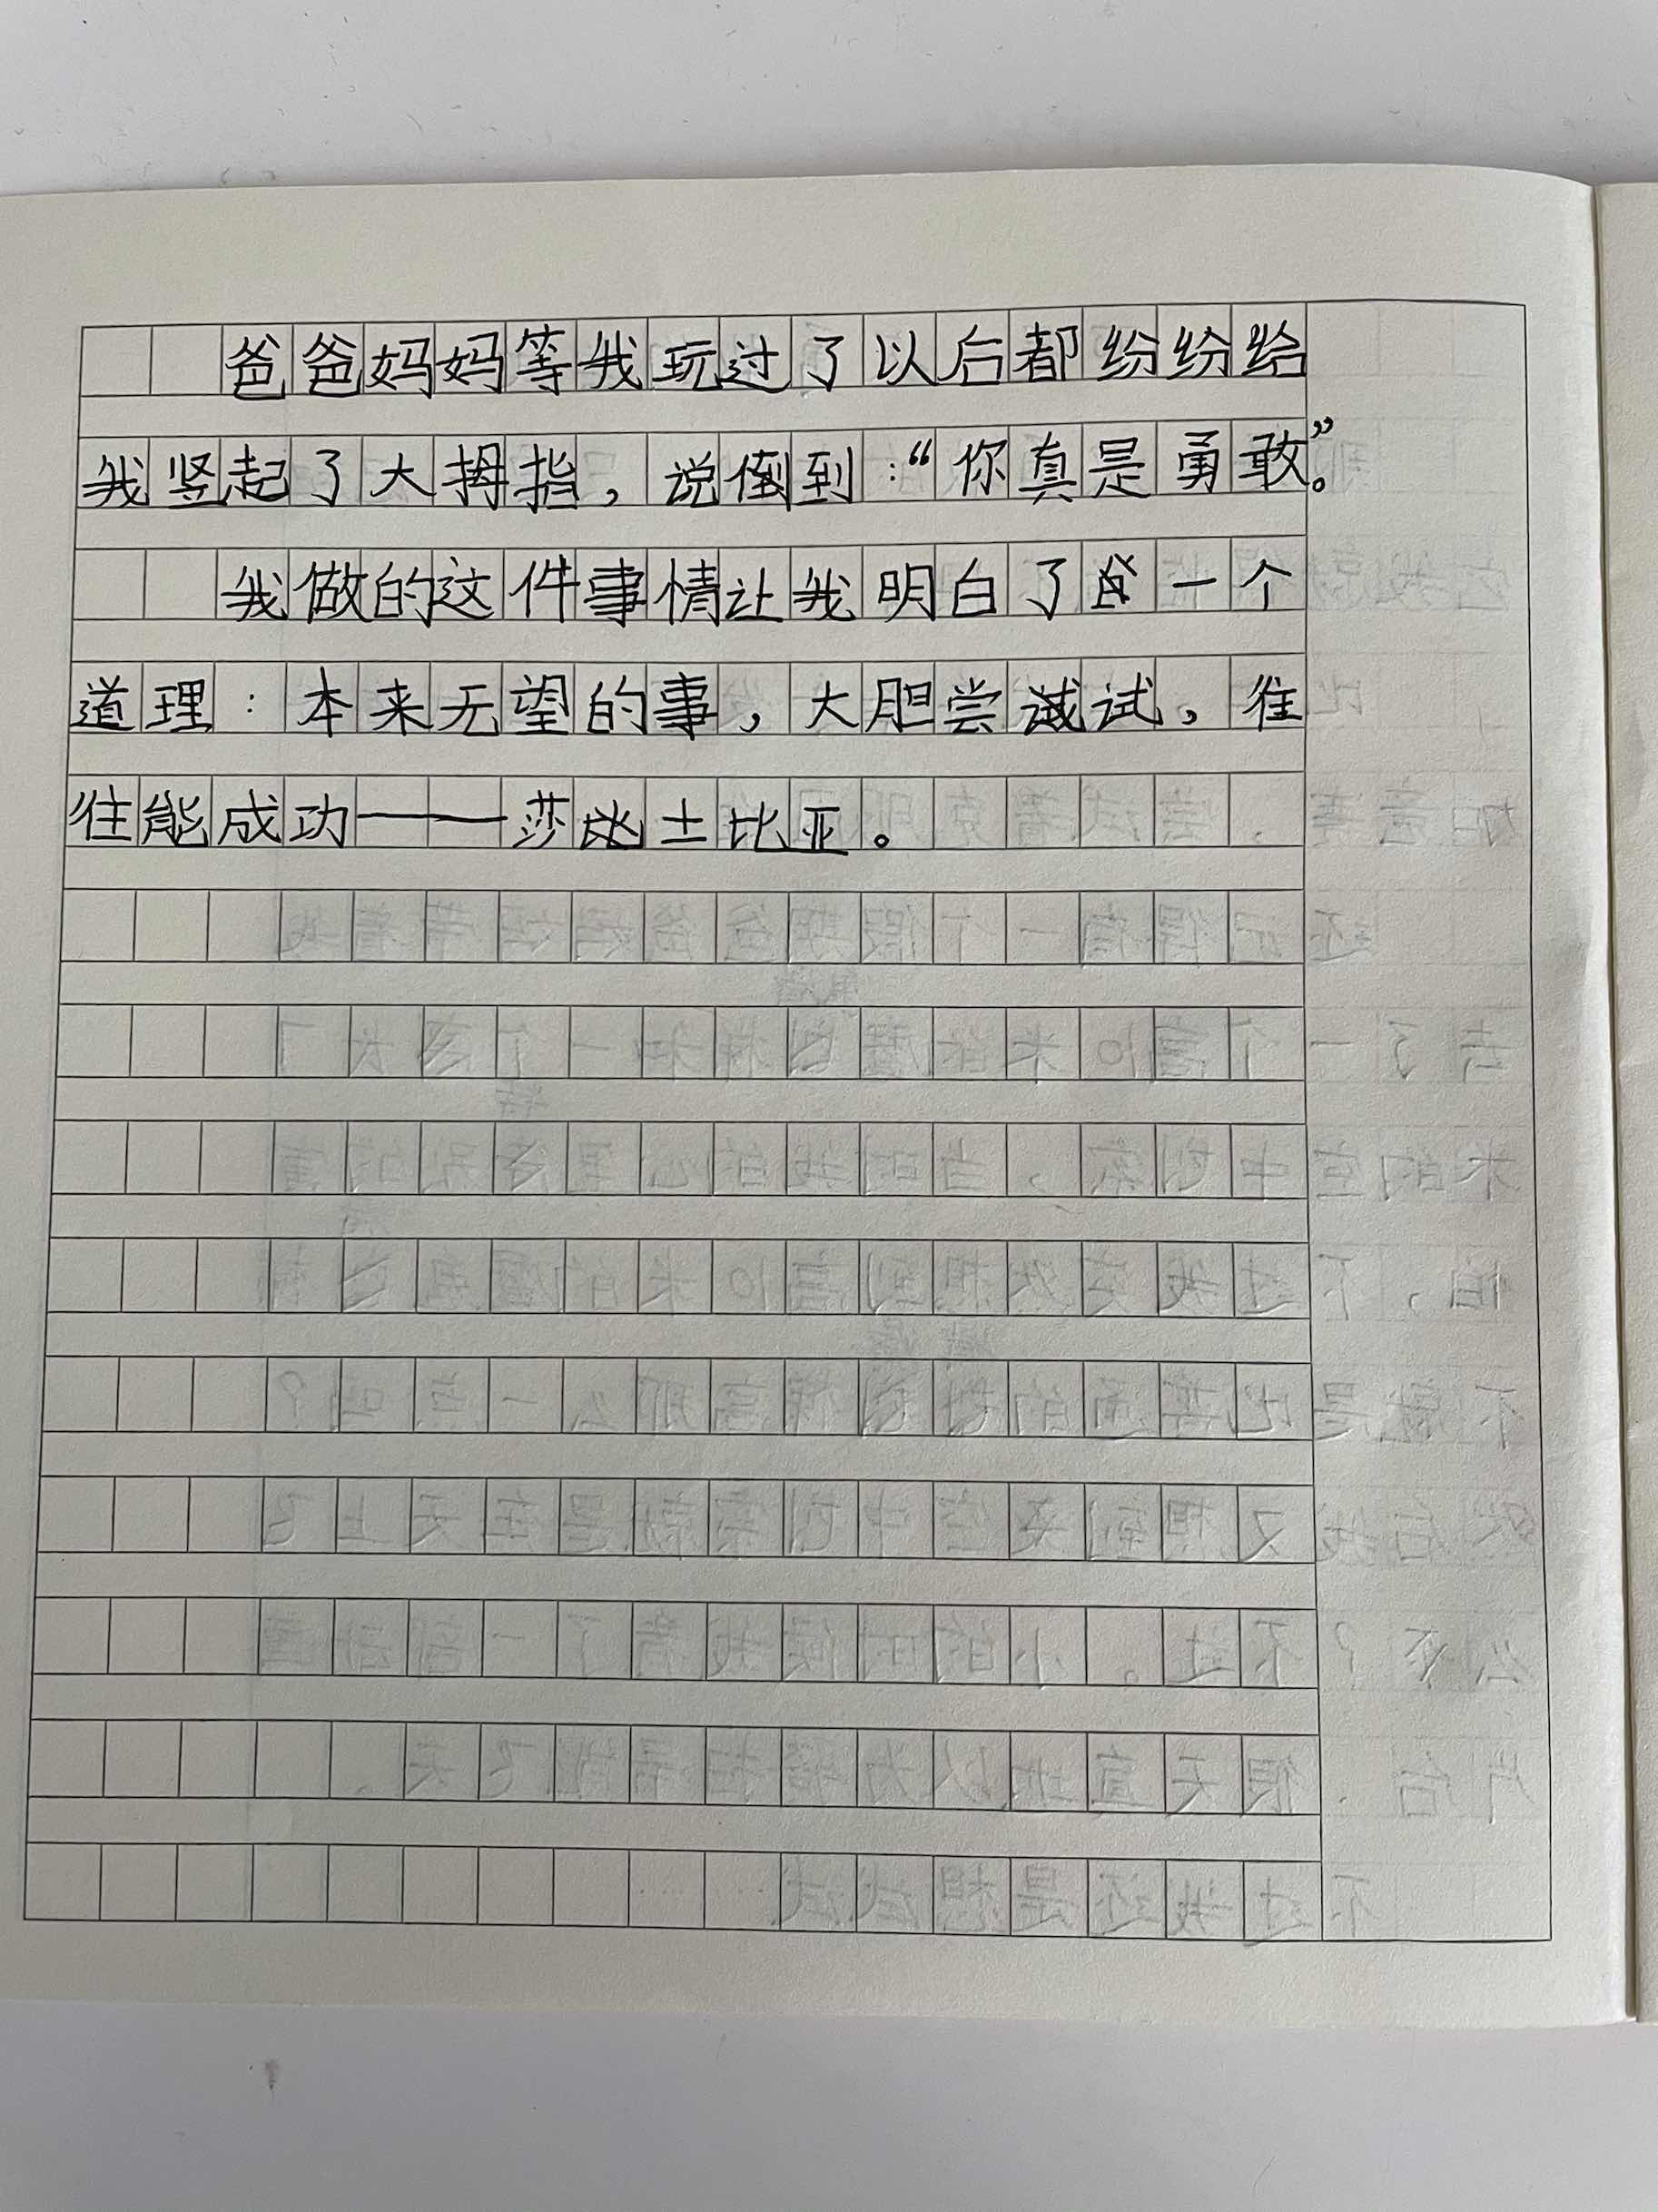 爸爸妈妈等我玩过了以后都纷纷给
我竖起了大拇指，说倒到：“你真是勇敢”。
我做的这件事情让我明白了一个
道理：本来无望的事，大胆尝试，往
往能成功——莎士比亚。